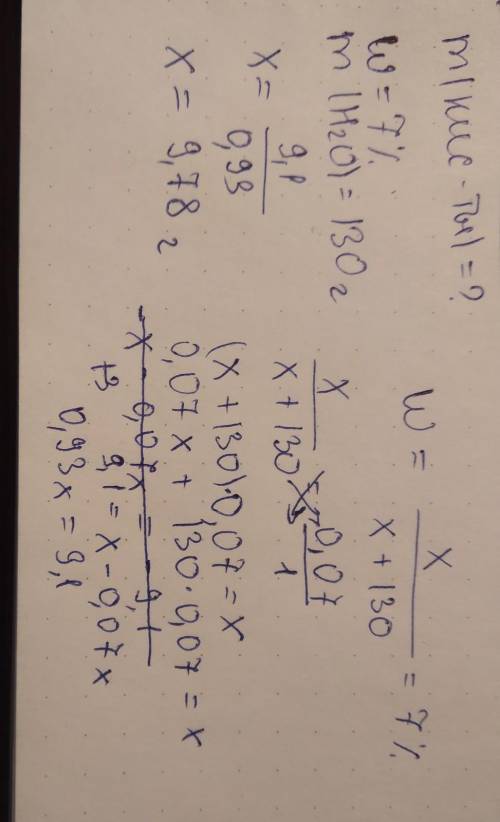 m(кис-ты) = ?
W = 7%
m(H₂O) = 130 г
x = 9,1 / 0,93
x = 9,78 г
W = x / x + 130 = 7%
x / x + 130 0,07 / 1
(x + 130)·0,07 = x
0,07x + 130·0,07 = x
x - 0,07x = - 9,1
9,1 = x - 0,07x
0,93x = 9,1